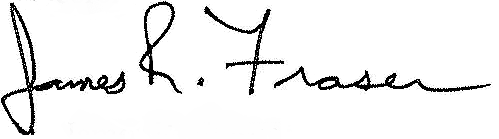 James R. Fraser